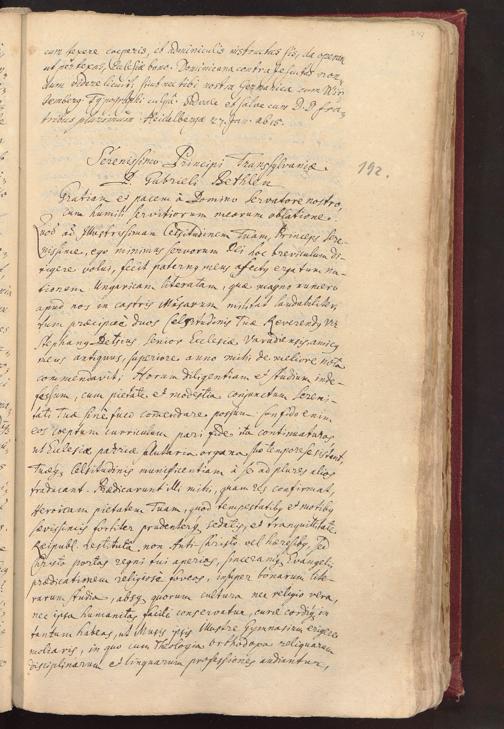 cum texere coeperis, et adminiculis instructus sis, da operam
ut pertexas, Ecclesiae bono. Dominicana contra Jesuitas non-
dum videre licuit, sicut nec tibi nostra Germanica cum Wir-
tembergi Typographi culpa. Vale et salve cum D. D. fra-
tribus plurimum. Heidelbergae 27. Jan. A. 1615.
Serenissimo Principi Transylvaniae
D. Gabrieli Bethlen
192.
Gratiam et pacem à Domino servatore nostro,
cum humili servitiorum meorum oblatione.
Quod ad Illustrissimam Celsitudinem Tuam, Princeps Sere-
nissime, ego minimus servorum Dei hoc breviculum di-
rigere volui, fecit paternus meus affectus ergatum na-
tionem Ungaricam literatam, quae magno numero
apud nos in castris Musarum militat laudabiliter
tum praecipuè duos Celsitudinis Tuae Reverendus Vir
Stephanus Detsius Senior Ecclesiae Varadiensis, amicus
meus antiquus, superiore anno mihi de meliore nota
commendavit; Horum diligentiam et studium inde-
fessum, cum pietate et modestia conjunctum Sereni-
tati Tuae sine fuco comendare possum confido enim
eos coeptum curriculum pari fide ita continuaturos,
ut Ecclesiae patriae salutaria organa suo tempore existant,
Tuaeque Celsitudinis munificentiam à se ad plures alios
traducant. Praedicarunt illi mihi, quam res confirmat,
Heroicam pietatem Tuam, quod tempestatibus et motibus
saevissimis fortiter prudenterque sedatis, et tranquillitate
Reipubl. restituta, non Anti-Christo vel haeresibus, sed
Christo portas regni tui aperias, sinceramque Evangelii
praedicationem religiosè foveas, insuper bonarum lite-
rarum studia, absque quorum cultura nec religio vera,
nec ipsa humanitas facilè conservatur, curae cordique in
tantum habeas, ut Musis ipsis Illustre Gymnasium erigere
moliaris, in quo cum Theologia Orthodoxa reliquarum
disciplinarum et linguarum professiones audiantur,